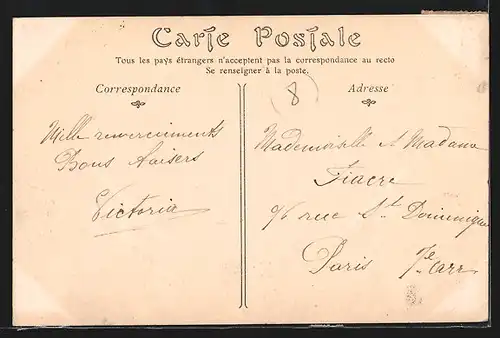 Carte Postale
Tous les pays étrangers n'acceptent pas la correspondance au recto
Se renseigner à la poste.
Correspondance
Adresse
8
Mille remerciments
Bons baisers
Victoria
Mademoiselle et Madame
Fiacre
rue St Dominique
Paris 7e arr